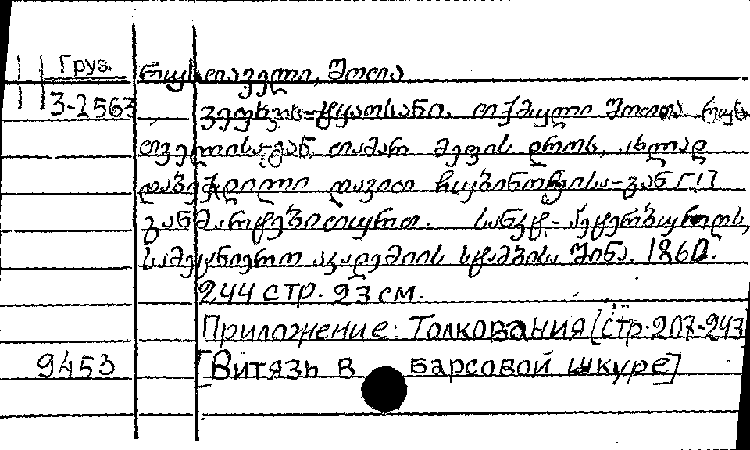 Груз. რუსთაველი, შოთა
3-2563 ვეფხვის-ტყაოსანი, თქმული შოთა რუს
თველისა-გან, თამარ მეფის დროს, ახლად
დაბეჭდილი დავით ჩუბინოვისა-გან
განმარტებითურთ. სანკტ-პეტერბურღს,
სამეცნიერო აკადემიის სტამბისა შინა. 1860.
244 стр. 23 см.
Приложение: Толкования (стр. 207-243
9453 [Витязь в барсовой шкуре]